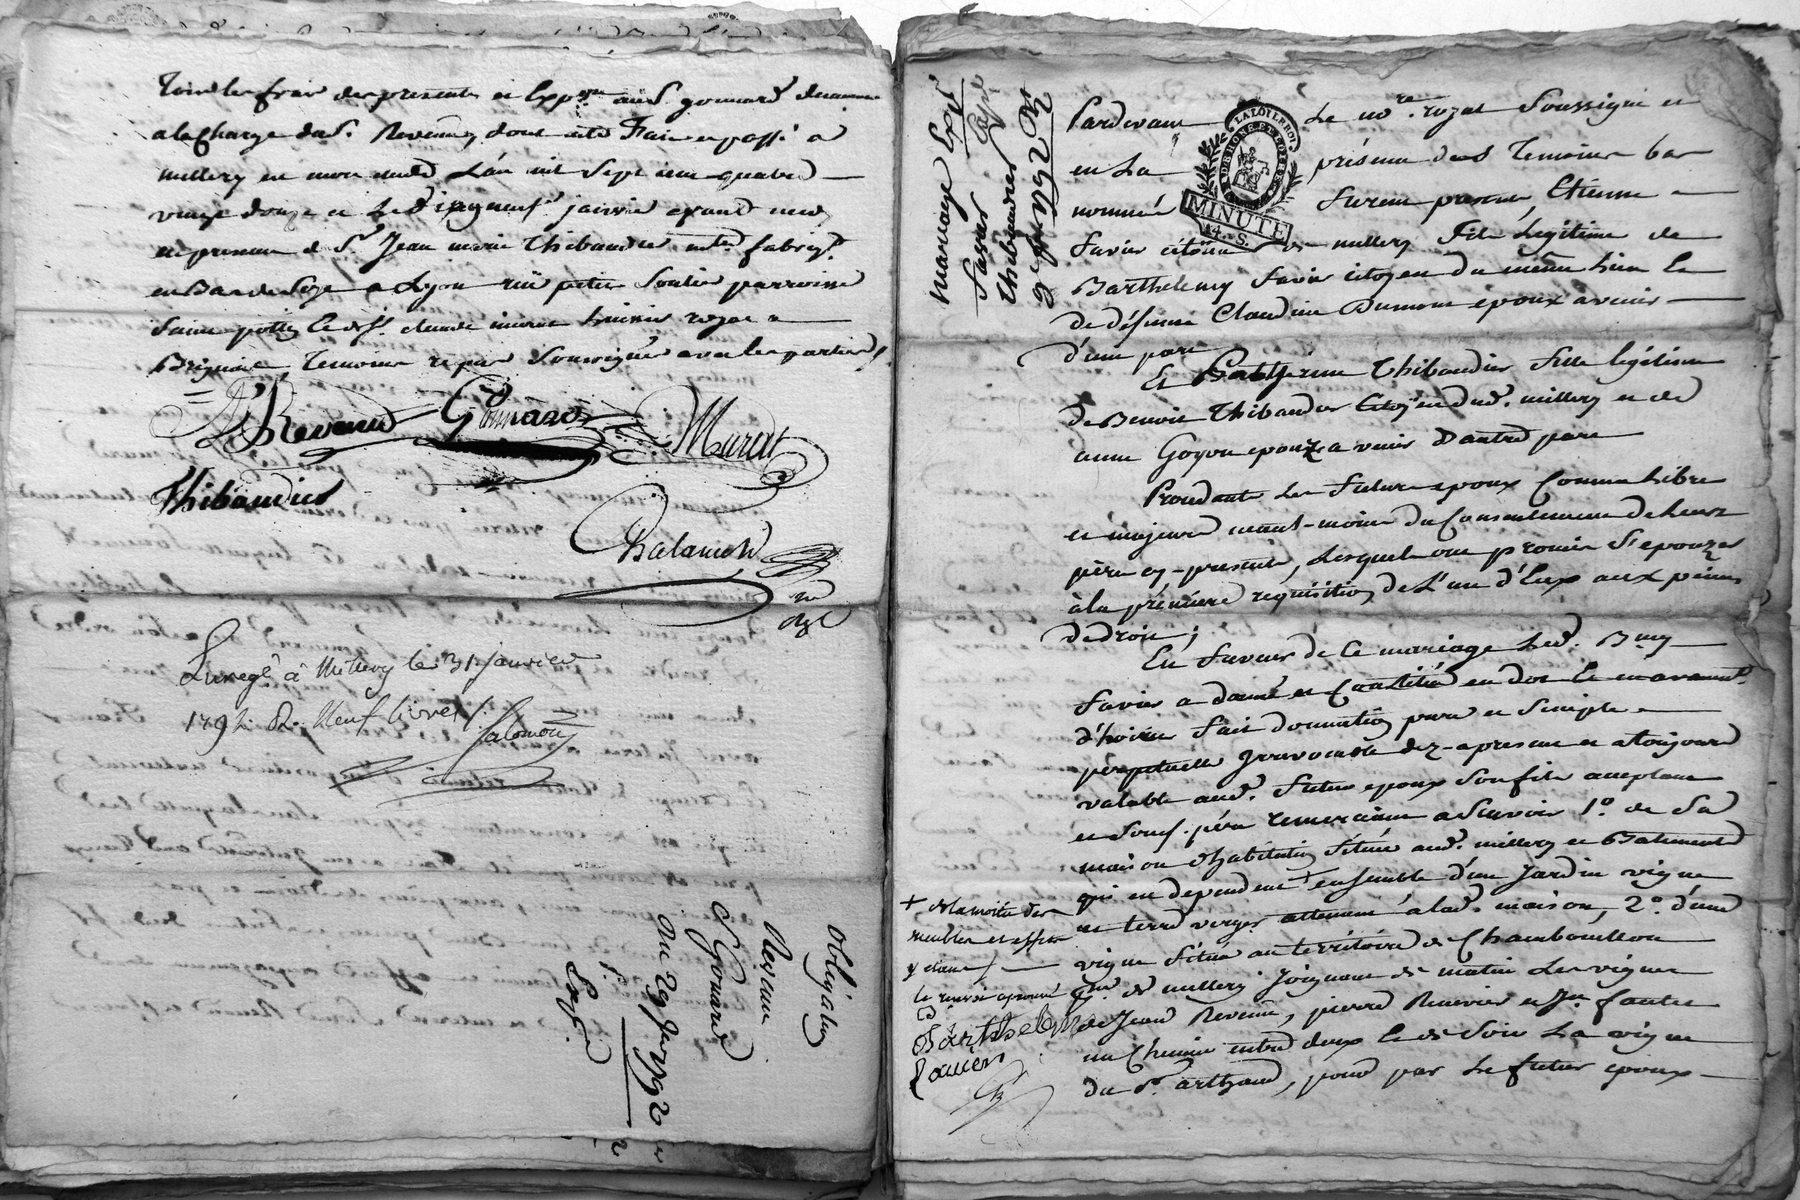 tous les frais des presentes et Expon aud S. gonnard demeure
a la Charge dud S. Revenu, dont acte Fait et passé a
millery en mon etude L'an mil Sept cent quatre
vingt douze et le vingt neuf janvier avant midy
en presence de Sr Jean marie Thibaudier md fabriqt
en Bas de Soye a Lyon rue petit Soulier parroisse
Saint
Brignais Temoins requis Soussignés avec les parties
Revenu Gonnard Murat
Thibaudier
Chalamel
nre
Enregé à Millery le 31 janvier
1792 R. Neuf livres
Salomon
obligation
Revenu
a Gonard
Du 29 Janer 1792
Expé
mariage Expé
Favier
Thibaudier
1792
Pardevant Le nre royal Soussigné et
en La présence des Temoins bas
nommés Furent presens Etienne
LA LOI LE ROI
DE RHONE ET LOIRE
MINUTE
4. S.
Favier citoien de millery Fils Légitime de
Barthelemy Favier citoyen du même Lieu et
de défunte Claudine Dumont epoux avenir
d'une part
Et Catherine Thibaudier fille légitime
de Benoit Thibaudier Citoyen dud. millery et de
anne Goyon epouze a venir D'autre part
Procedants Les Futurs epoux Comme Libres
et majeurs neant-moins du Consentement de Leurs
pères cy-presents, Lesquels ont promis S'epouzer
à la première requisition de L'un d'Eux aux peines
de droit;
En faveur de Ce mariage Led. Bmy
Favier a donné et Constitué en dot et en avancemt
d'hoirie Fait donnation pure et Simple
perpetuelle Irrevocable dez-apresent et a toujours
valable aud. Futur epoux Son fils acceptant
et Sond. père remerciant a Scavoir 1º. de Sa
maison d'habitation Située aud. millery et Batiments
qui en dependent + ensemble d'un Jardin vigne
et terre verger attenant à lad. maison, 2º. d'une
vigne Située au territoire de Chambouillon
de millery Joignant de matin Les vignes
de Jean Revenu, pierre Renevier et Jn fautier
un Chemin entre deux et de Soir La vigne
du Sr arthaud, pour par Le futur epoux
+ de la moitié des
meubles et effets
y étant
le renvoi aprouvé
Barthelemy
Favier